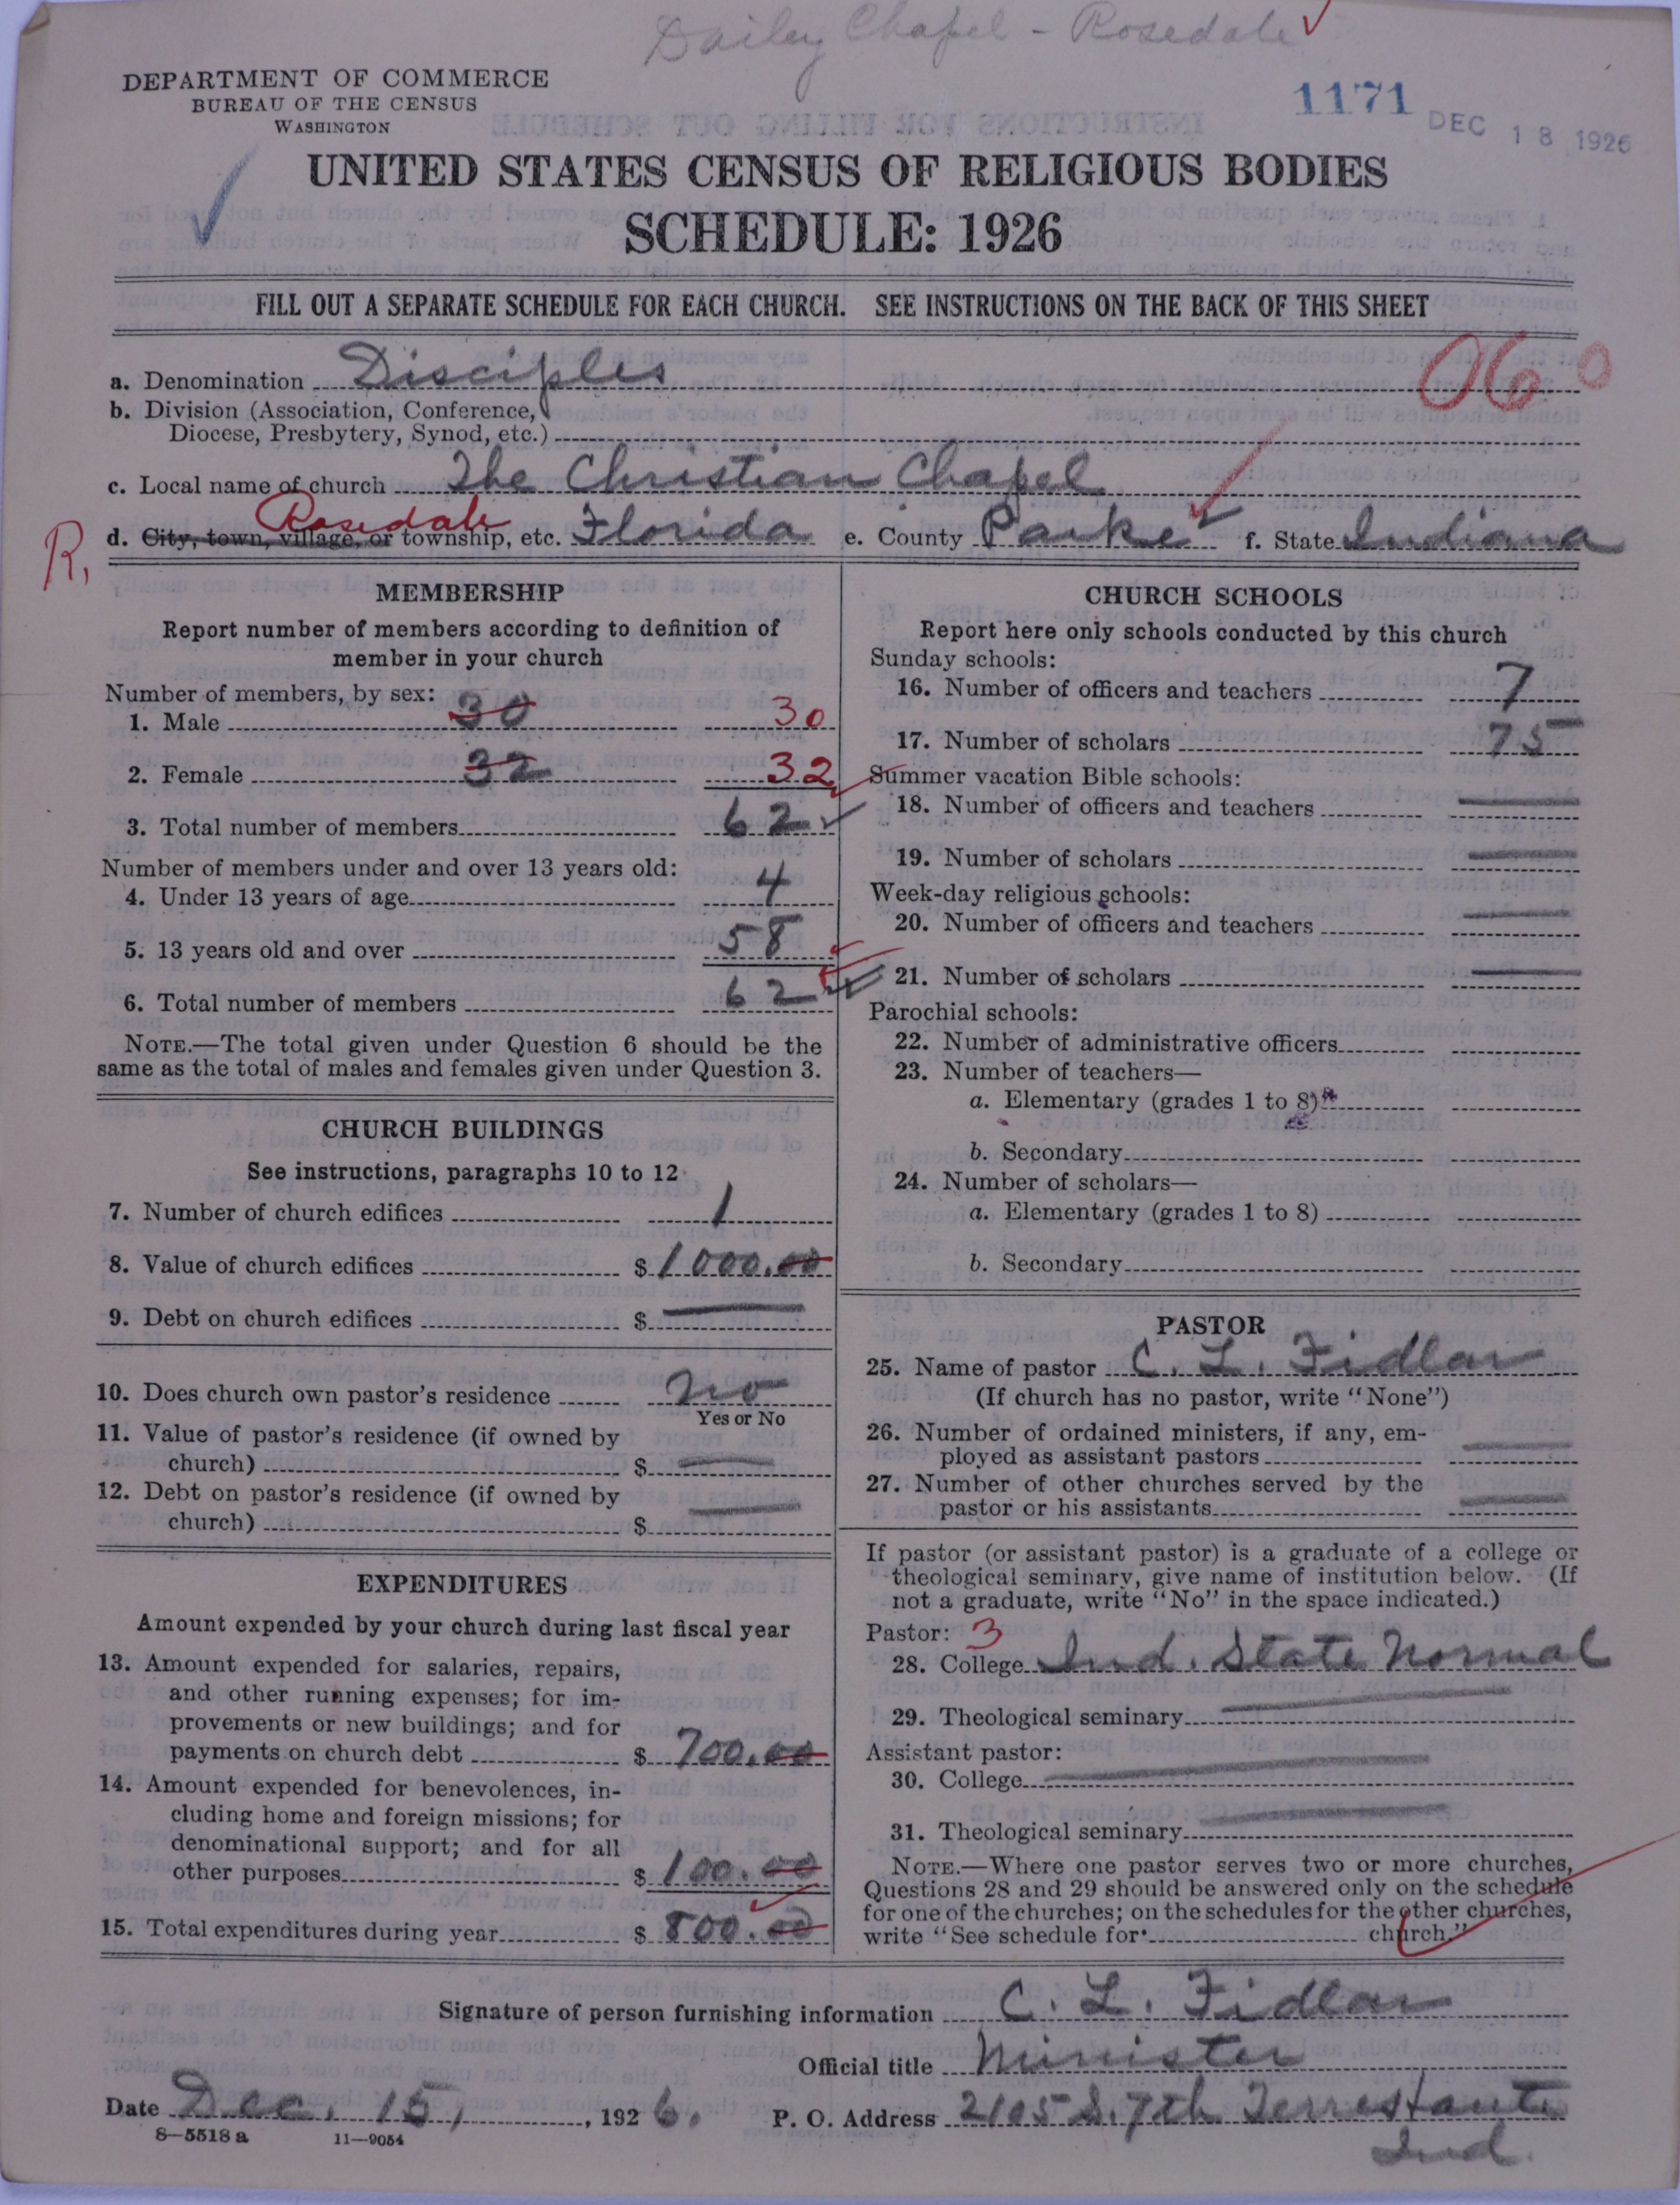 Dailey Chapel - Rosedale
DEPARTMENT OF COMMERCE
BUREAU OF THE CENSUS
WASHINGTON
1171
DEC 18 1926
UNITED STATES CENSUS OF RELIGIOUS BODIES
SCHEDULE: 1926
FILL OUT A SEPARATE SCHEDULE FOR EACH CHURCH. SEE INSTRUCTIONS ON THE BACK OF THIS SHEET
060
a. Denomination Disciples
b. Division (Association, Conference,
Diocese, Presbytery, Synod, etc.)
c. Local name of church The Christian Chapel
Rosedale
R. d. City, town, village, or township, etc. Florida e. County Parke f. State Indiana
MEMBERSHIP
Report number of members according to definition of
member in your church
Number of members, by sex:
1. Male 30 30
2. Female 32 32
3. Total number of members 62
Number of members under and over 13 years old:
4. Under 13 years of age 4
5. 13 years old and over 58
6. Total number of members 62
NOTE.—The total given under Question 6 should be the
same as the total of males and females given under Question 3.
CHURCH BUILDINGS
See instructions, paragraphs 10 to 12
7. Number of church edifices 1
8. Value of church edifices $ 1000.00
9. Debt on church edifices $
10. Does church own pastor's residence no
Yes or No
11. Value of pastor's residence (if owned by
church) $
12. Debt on pastor's residence (if owned by
church) $
EXPENDITURES
Amount expended by your church during last fiscal year
13. Amount expended for salaries, repairs,
and other running expenses; for im-
provements or new buildings; and for
payments on church debt $ 700.00
14. Amount expended for benevolences, in-
cluding home and foreign missions; for
denominational support; and for all
other purposes $ 100.00
15. Total expenditures during year $ 800.00
CHURCH SCHOOLS
Report here only schools conducted by this church
Sunday schools:
16. Number of officers and teachers 7
17. Number of scholars 75
Summer vacation Bible schools:
18. Number of officers and teachers
19. Number of scholars
Week-day religious schools:
20. Number of officers and teachers
21. Number of scholars
Parochial schools:
22. Number of administrative officers
23. Number of teachers—
a. Elementary (grades 1 to 8)
b. Secondary
24. Number of scholars—
a. Elementary (grades 1 to 8)
b. Secondary
PASTOR
25. Name of pastor C. L. Fidlar
(If church has no pastor, write "None")
26. Number of ordained ministers, if any, em-
ployed as assistant pastors
27. Number of other churches served by the
pastor or his assistants
If pastor (or assistant pastor) is a graduate of a college or
theological seminary, give name of institution below. (If
not a graduate, write "No" in the space indicated.)
Pastor: 3
28. College Ind. State Normal
29. Theological seminary
Assistant pastor:
30. College
31. Theological seminary
NOTE.—Where one pastor serves two or more churches,
Questions 28 and 29 should be answered only on the schedule
for one of the churches; on the schedules for the other churches,
write "See schedule for church."
Signature of person furnishing information C. L. Fidlar
Official title Minister
Date Dec. 15, 1926. P. O. Address 2105 S. 7th Terre Haute
Ind.
8—5518 a 11—9054